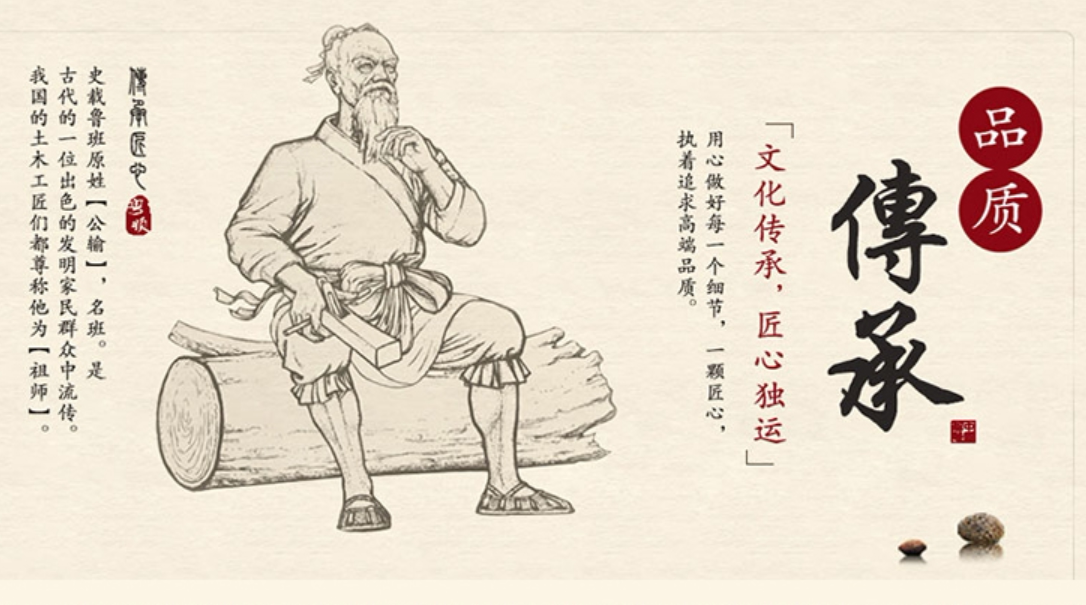 品质
傳承
「文化传承，匠心独运」
用心做好每一个细节，一颗匠心，
执着追求高端品质。
傳承匠心
史载鲁班原姓【公输】，名班。是
古代的一位出色的发明家民群众中流传。
我国的土木工匠们都尊称他为【祖师】。